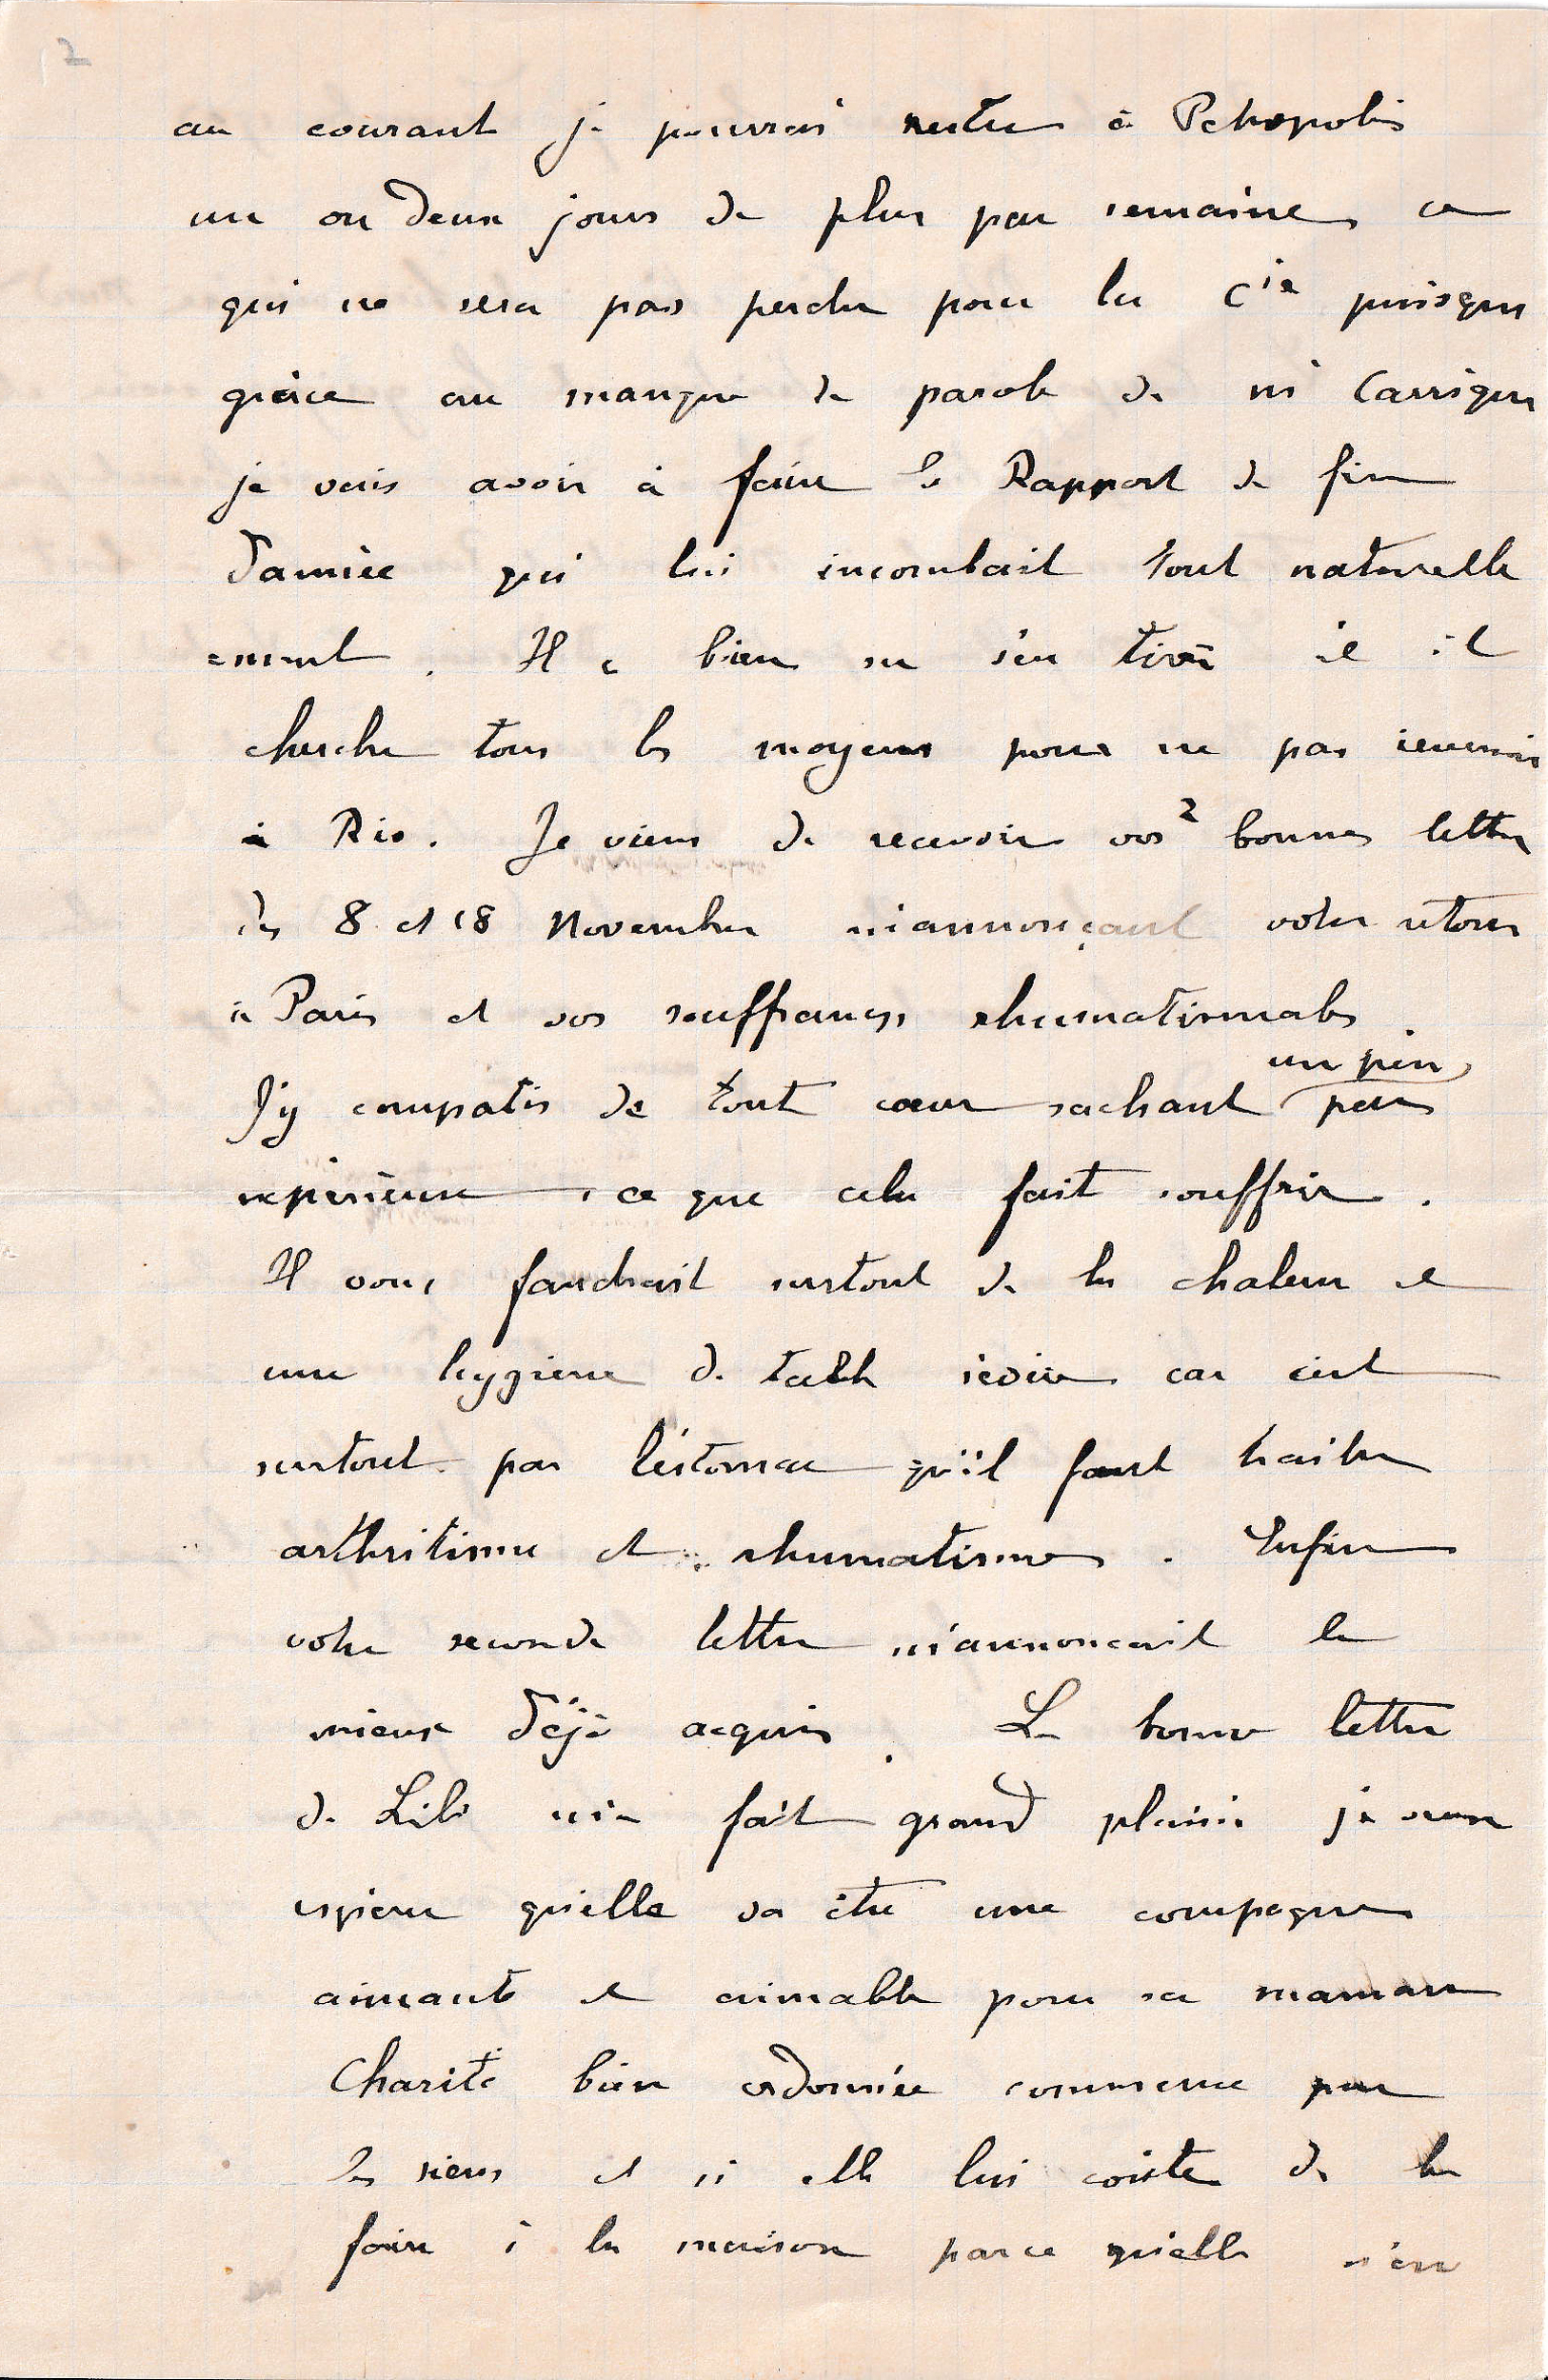 2
au courant je pourrai rester à Petropolis
un ou deux jours de plus par semaine, ce
qui ne sera pas perdu pour la Cie puisque
grâce au manque de parole de Mr Carrigue
je vais avoir à faire le Rapport de fin
d'année qui lui incombait tout naturelle
=ment. Il a bien su s'en tirer et il
cherche tous les moyens pour ne pas revenir
à Rio. Je viens de recevoir vos 2 bonnes lettres
des 8 et 18 Novembre m'annonçant votre retour
à Paris et vos souffrances rhumatismales.
un peu
J'y compatis de tout cœur sachant par
expérience, ce que cela fait souffrir.
Il vous faudrait surtout de la chaleur et
une hygiène de table sévère car c'est
surtout par l'estomac qu'il faut traiter
arthritisme et rhumatismes. Enfin
votre seconde lettre m'annonçait le
mieux déjà acquis. La bonne lettre
de Lili m'a fait grand plaisir je veux
espérer qu'elle va être une compagne
aimante et aimable pour sa maman
Charité bien ordonnée commence par
les siens et si elle lui coûte de la
faire à la maison parce qu'elle s'en